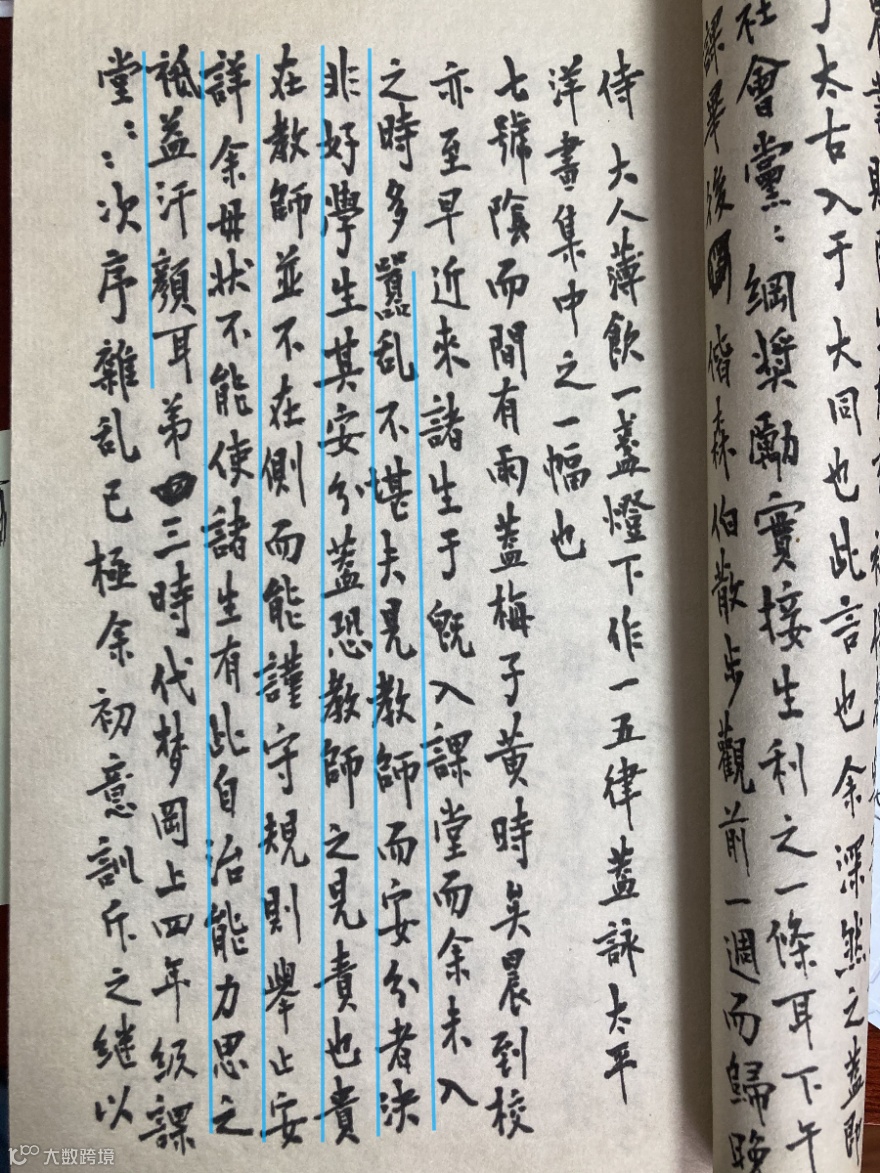 于太古入于大同也此言也余深然之蓋即
社會黨：綱獎勵實接生利之一條耳下午
課畢後偕森伯散步觀前一週而歸晚
侍大人薄飲一盞燈下作一五律蓋詠太平
洋畫集中之一幅也
七號陰而間有雨蓋梅子黃時矣晨到校
亦至早近來諸生于既入課堂而余未入
之時多囂乱不堪夫見教師而安分者決
非好學生其安分蓋恐教師之見責也貴
在教師並不在側而能謹守規則舉止安
詳余毋狀不能使諸生有此自治能力思之
祗益汗顏耳第四三時代梦岡上四年級課
堂：：次序雜乱已極余初意訓斥之継以
大数跨境